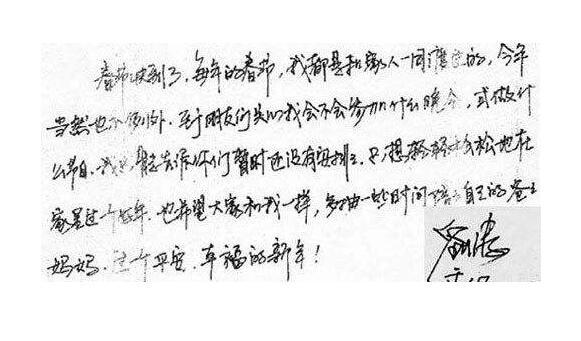 春节快到了，每年的春节，我都是和家人一同度过的，今年
当然也不例外。至于朋友们关心我会不会参加什么晚会，或做什
么节目，我告诉你们暂时还没有安排。只想轻轻松松地在
家里过个好年。也希望大家和我一样，多抽一些时间陪自己的爸爸
妈妈，过个平安、幸福的新年！